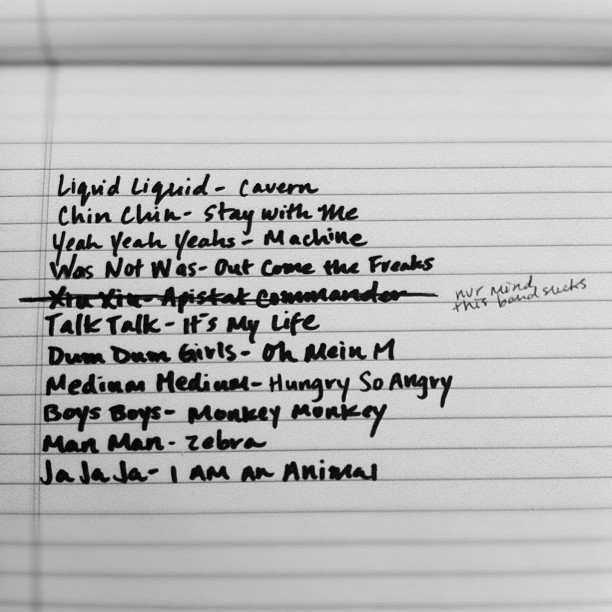 Liquid Liquid - Cavern
Chin Chin - Stay with Me
Yeah Yeah Yeahs - Machine
Was Not Was - Out Come the Freaks
Xiu Xiu - Apistat Commander
nvr mind this band sucks
Talk Talk - It's My Life
Dum Dum Girls - Oh Mein M
Medium Medium - Hungry So Angry
Boys Boys - Monkey Monkey
Man Man - Zebra
Ja Ja Ja - I AM AN Animal